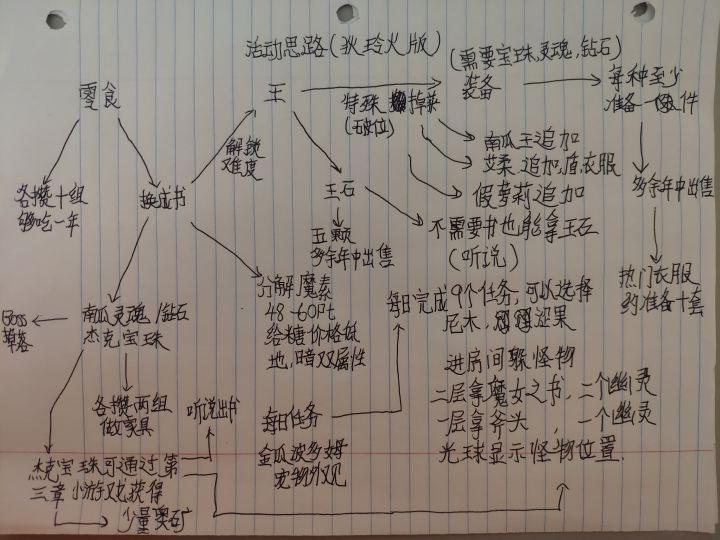 活动思路(狄玲火版)
(需要宝珠,灵魂,钻石)
零食
王
特殊 掉落
(砍位)
装备
每种至少
准备一 件
解锁
难度
南瓜王追加
艾柔,追加,盾,衣服
假萝莉追加
各攒十组
够吃一年
换成书
王石
多余年中出售
不需要书也能拿王石
(听说)
五颗
多余年中出售
热门衣服
约准备十套
分解魔素
48-60Pt
给糖价格低
地,暗双属性
每日完成9个任务,可以选择
尼木, 涩果
南瓜灵魂/钻石
杰克宝珠
Boss
掉落
进房间躲怪物
二层拿魔女之书,二个幽灵
一层拿斧头,一个幽灵
光球显示怪物位置.
各攒两组
做家具
听说出书
每日任务
金瓜波多姆
宠物外观
杰克宝珠可通过第
三章小游戏获得
少量奥矿